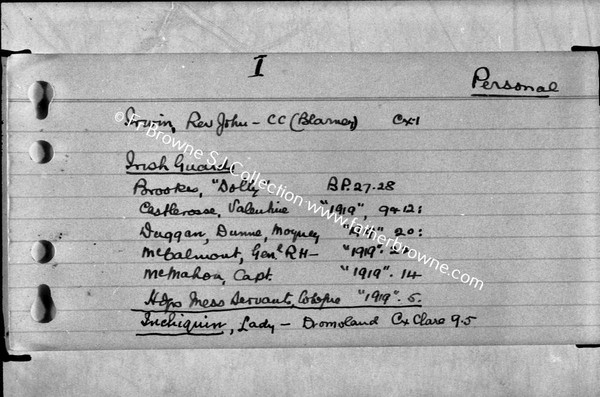 I
Personal
Irwin, Rev John - CC (Blarney) Cx-1
Irish Guards
Brookes, "Dolly" B.P. 27-28
Castlerosse, Valentine "1919",
Duggan, Dunne, "1919" 20:
McCalmont, Genl R H - "1919".
McMahon, Capt. "1919". 14
Hdqs Mess Servant, "1919". 5.
Inchiquin, Lady - Dromoland Co Clare 9.5
© Fr Browne S.J. Collection - www.fatherbrowne.com